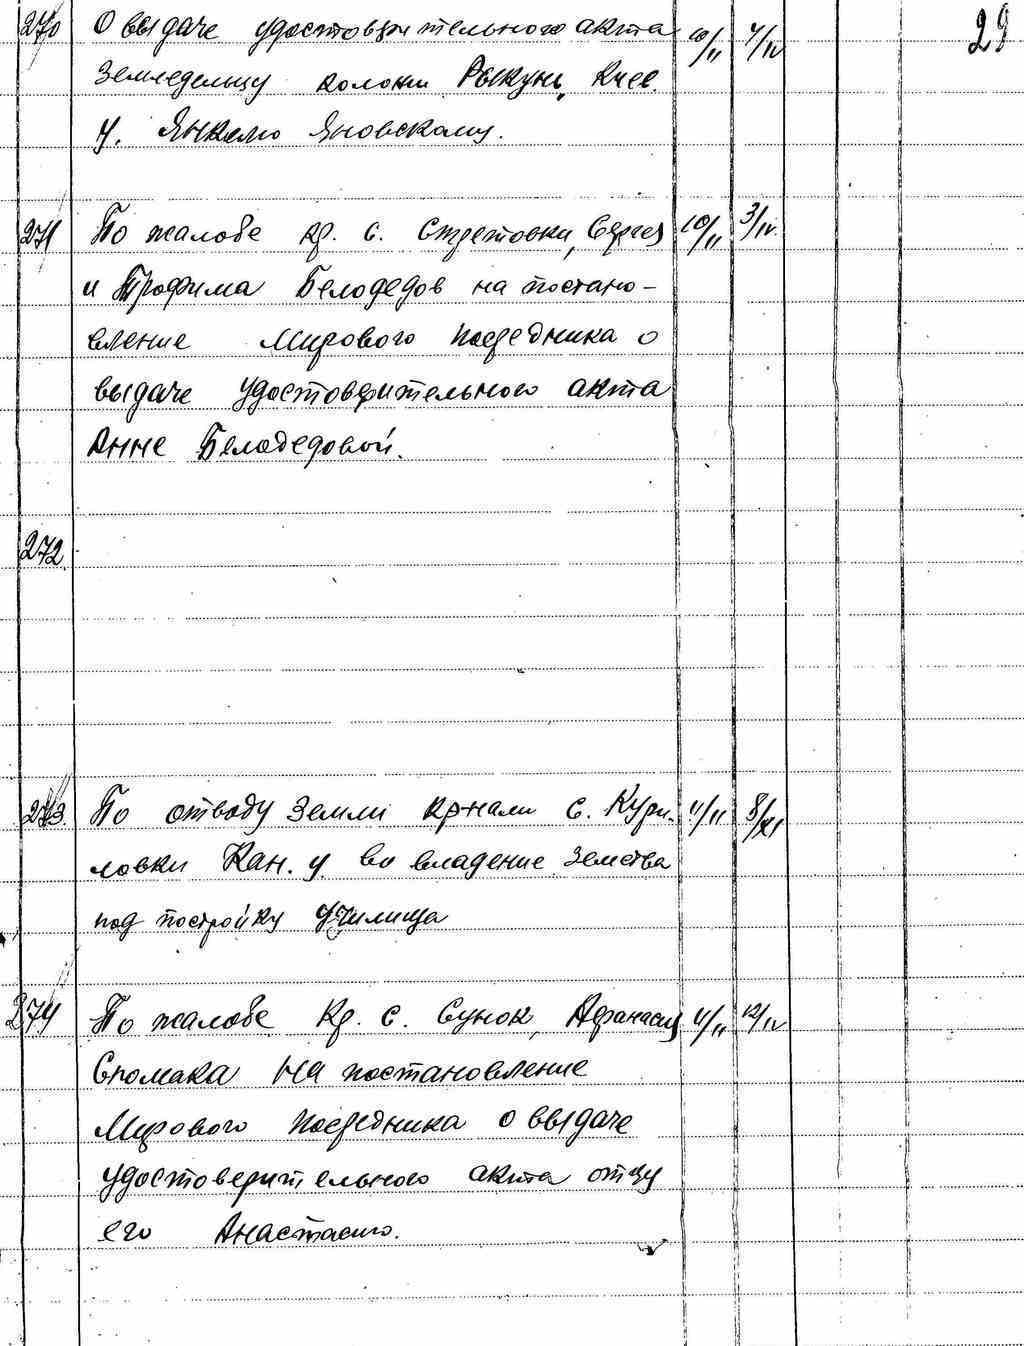 29
270 О выдаче удостоверительного акта 10/II 4/IV
Земледельцу колонии Рыкунь, Киев.
у. Янкелю Яновскому.
271 По жалобе кр. с. Стретовки, Сергея 10/II 3/IV.
и Трофима Белодедов на постано-
вление Мирового посредника о
выдаче удостоверительного акта
Анне Белодедовой.
272.
273. По отводу земли кр-нами с. Кури- 11/II 8/XI
ловки Кан. у. во владение Земства
под постройку училища
274 По жалобе Кр. с. Сунок, Афанасия 11/II 12/IV
Спомака на постановление
Мирового посредника о выдаче
удостоверительного акта отцу
его Анастасию.